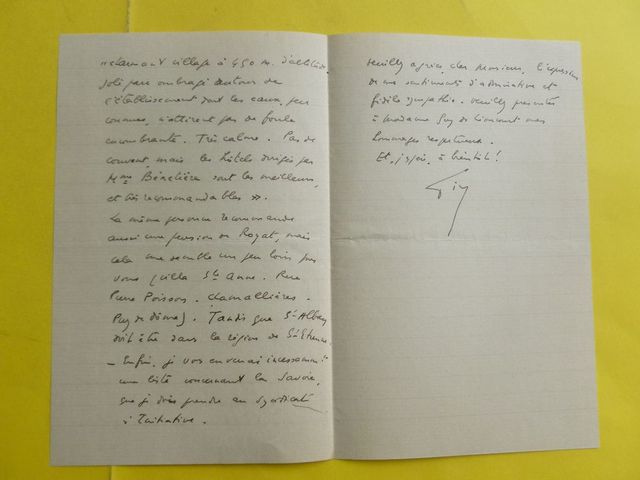 village à 450 m. d'altitude.
Joli parc ombragé autour de
l'établissement dont les eaux, peu
connues, n'attirent pas de foule
encombrante. Très calme. Pas de
couvent, mais les hôtels dirigés par
Mme Bénetière sont les meilleurs,
et très recommandables ».
La même personne recommande
aussi une pension de Royat, mais
cela me semble un peu loin pour
vous (villa Ste Anne. Rue
Pierre Poisson. Chamallières.
Puy de dôme). Tandis que St Alban
doit être dans la région de St Etienne
- Enfin, je vous enverrai incessamment
une liste concernant la Savoie,
que je dois prendre au Syndicat
d'Initiative.
Veuillez agréer, cher Monsieur, l'expression
de mes sentiments d'admiration et
fidèle sympathie. Veuillez présenter
à Madame Guy de Lioncourt mes
hommages respectueux.
Et, j'espère, à bientôt !